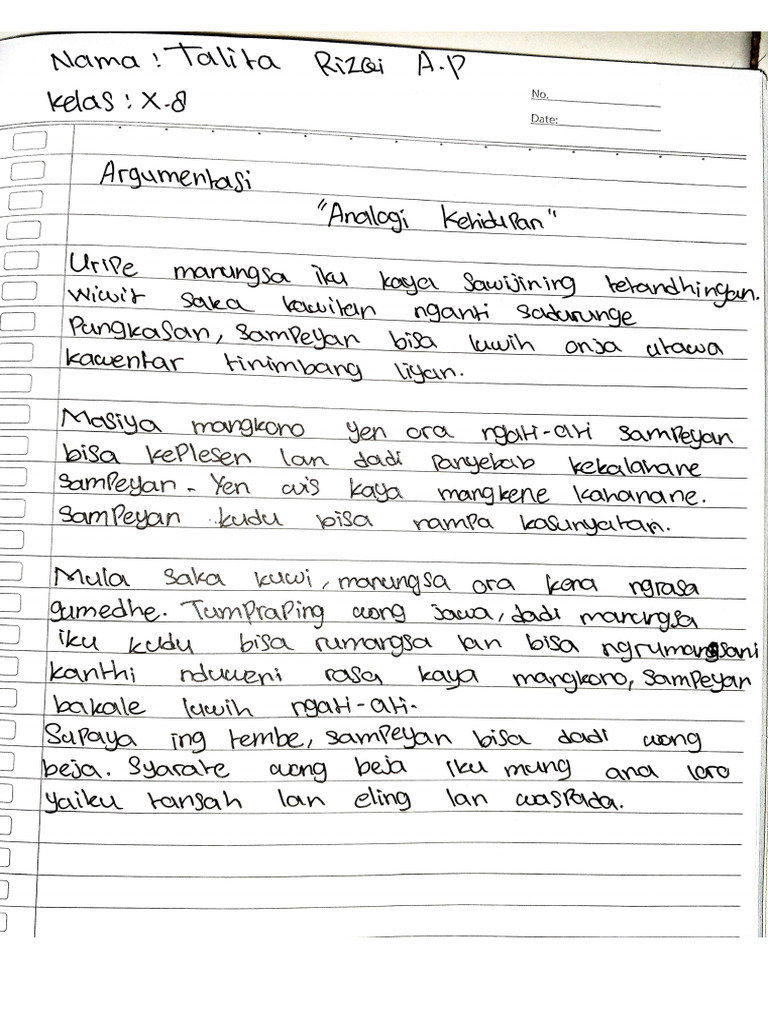 Nama : Talita Rizqi A.P
Kelas : X-8
No.
Date:
Argumentasi
"Analogi Kehidupan"
Uripe manungsa iku kaya sawijining tetandhingan.
Wiwit saka kawitan nganti sadurunge
Pungkasan, sampeyan bisa luwih onja utawa
kawentar tinimbang liyan.
Masiya mangkono yen ora ngati-ati sampeyan
bisa keplesen lan dadi panyebab kekalahane
sampeyan. Yen wis kaya mangkene kahanane.
Sampeyan kudu bisa nampa kasunyatan.
Mula saka kuwi, manungsa ora kena ngrasa
gumedhe. Tumpraping wong jawa, dadi manungsa
iku kudu bisa rumangsa lan bisa ngrumangsani
kanthi nduweni rasa kaya mangkono, sampeyan
bakale luwih ngati-ati.
Supaya ing tembe, sampeyan bisa dadi wong
beja. Syarate wong beja iku mung ana loro
yaiku tansah lan eling lan waspada.